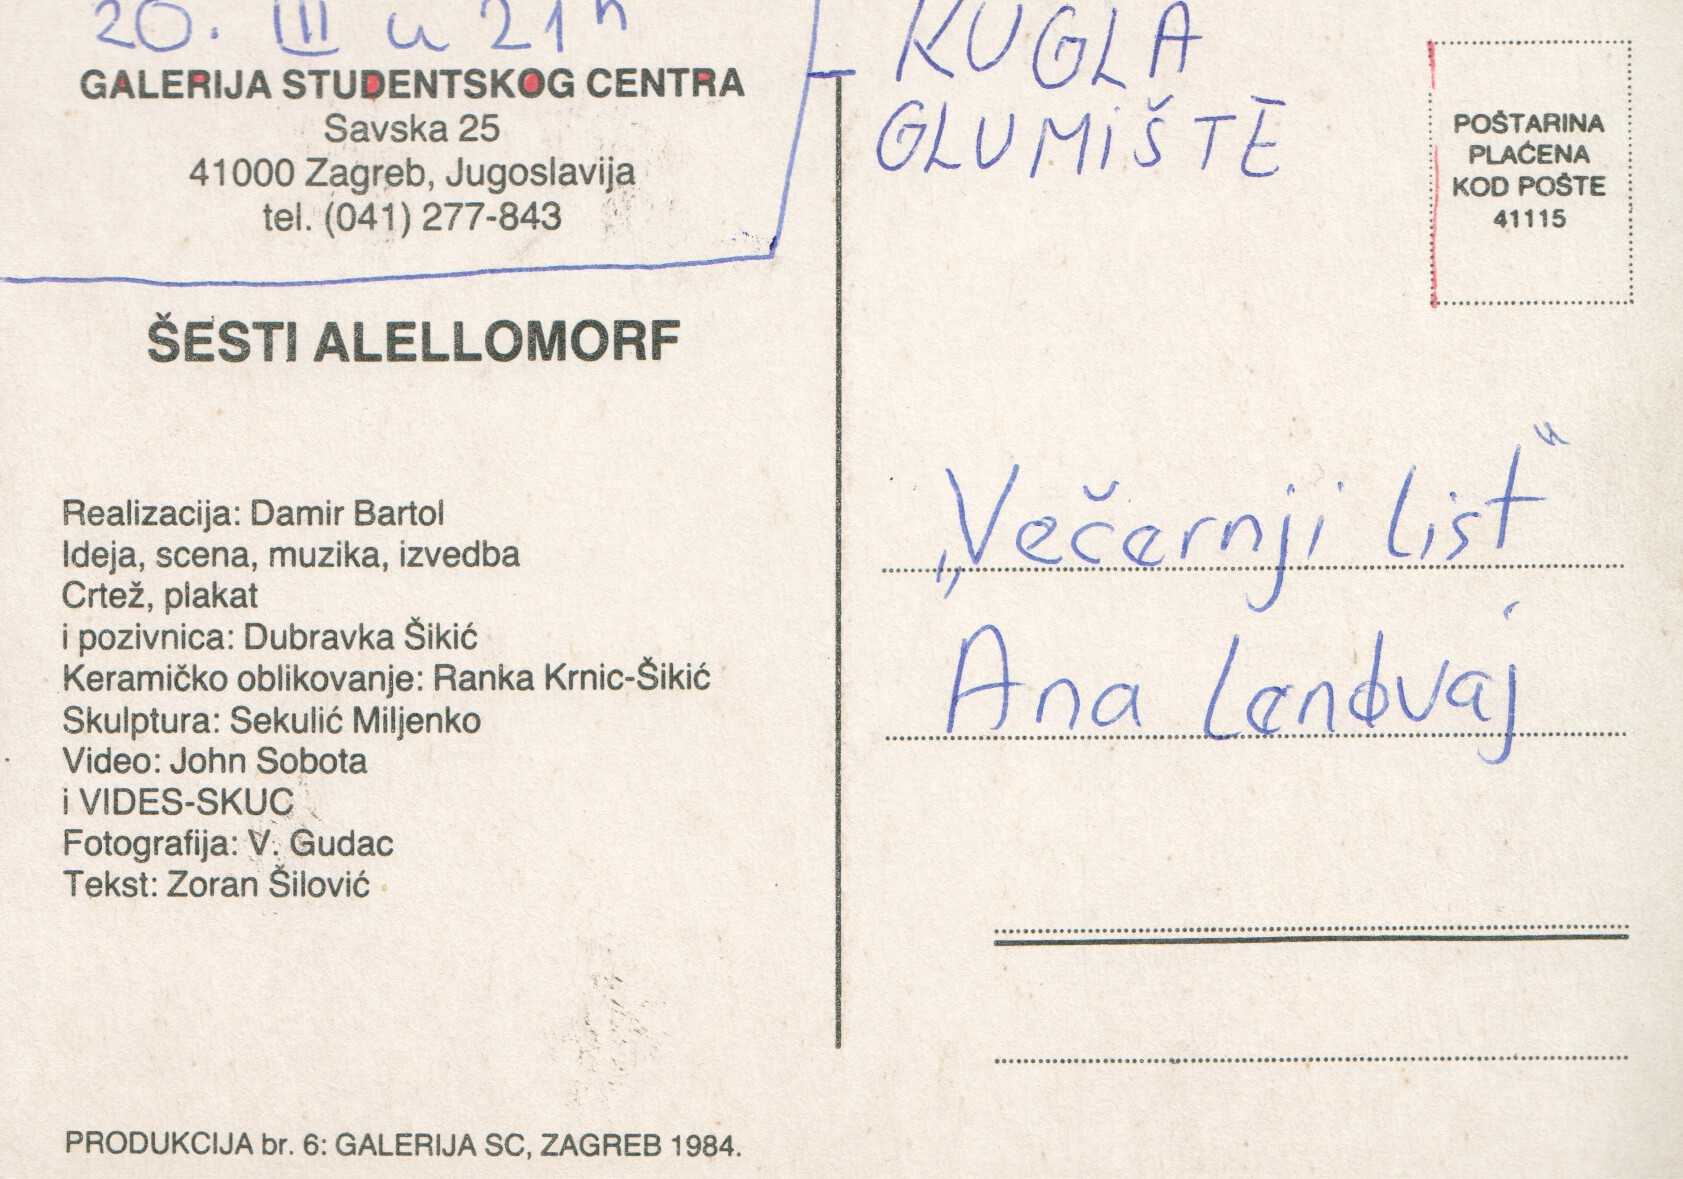 20. III u 21h
GALERIJA STUDENTSKOG CENTRA
Savska 25
41000 Zagreb, Jugoslavija
tel. (041) 277-843
ŠESTI ALELLOMORF
Realizacija: Damir Bartol
Ideja, scena, muzika, izvedba
Crtež, plakat
i pozivnica: Dubravka Šikić
Keramičko oblikovanje: Ranka Krnic-Šikić
Skulptura: Sekulić Miljenko
Video: John Sobota
i VIDES-SKUC
Fotografija: V. Gudac
Tekst: Zoran Šilović
PRODUKCIJA br. 6: GALERIJA SC, ZAGREB 1984.
KUGLA
GLUMIŠTE
POŠTARINA
PLAĆENA
KOD POŠTE
41115
„Večernji list“
Ana Lendvaj